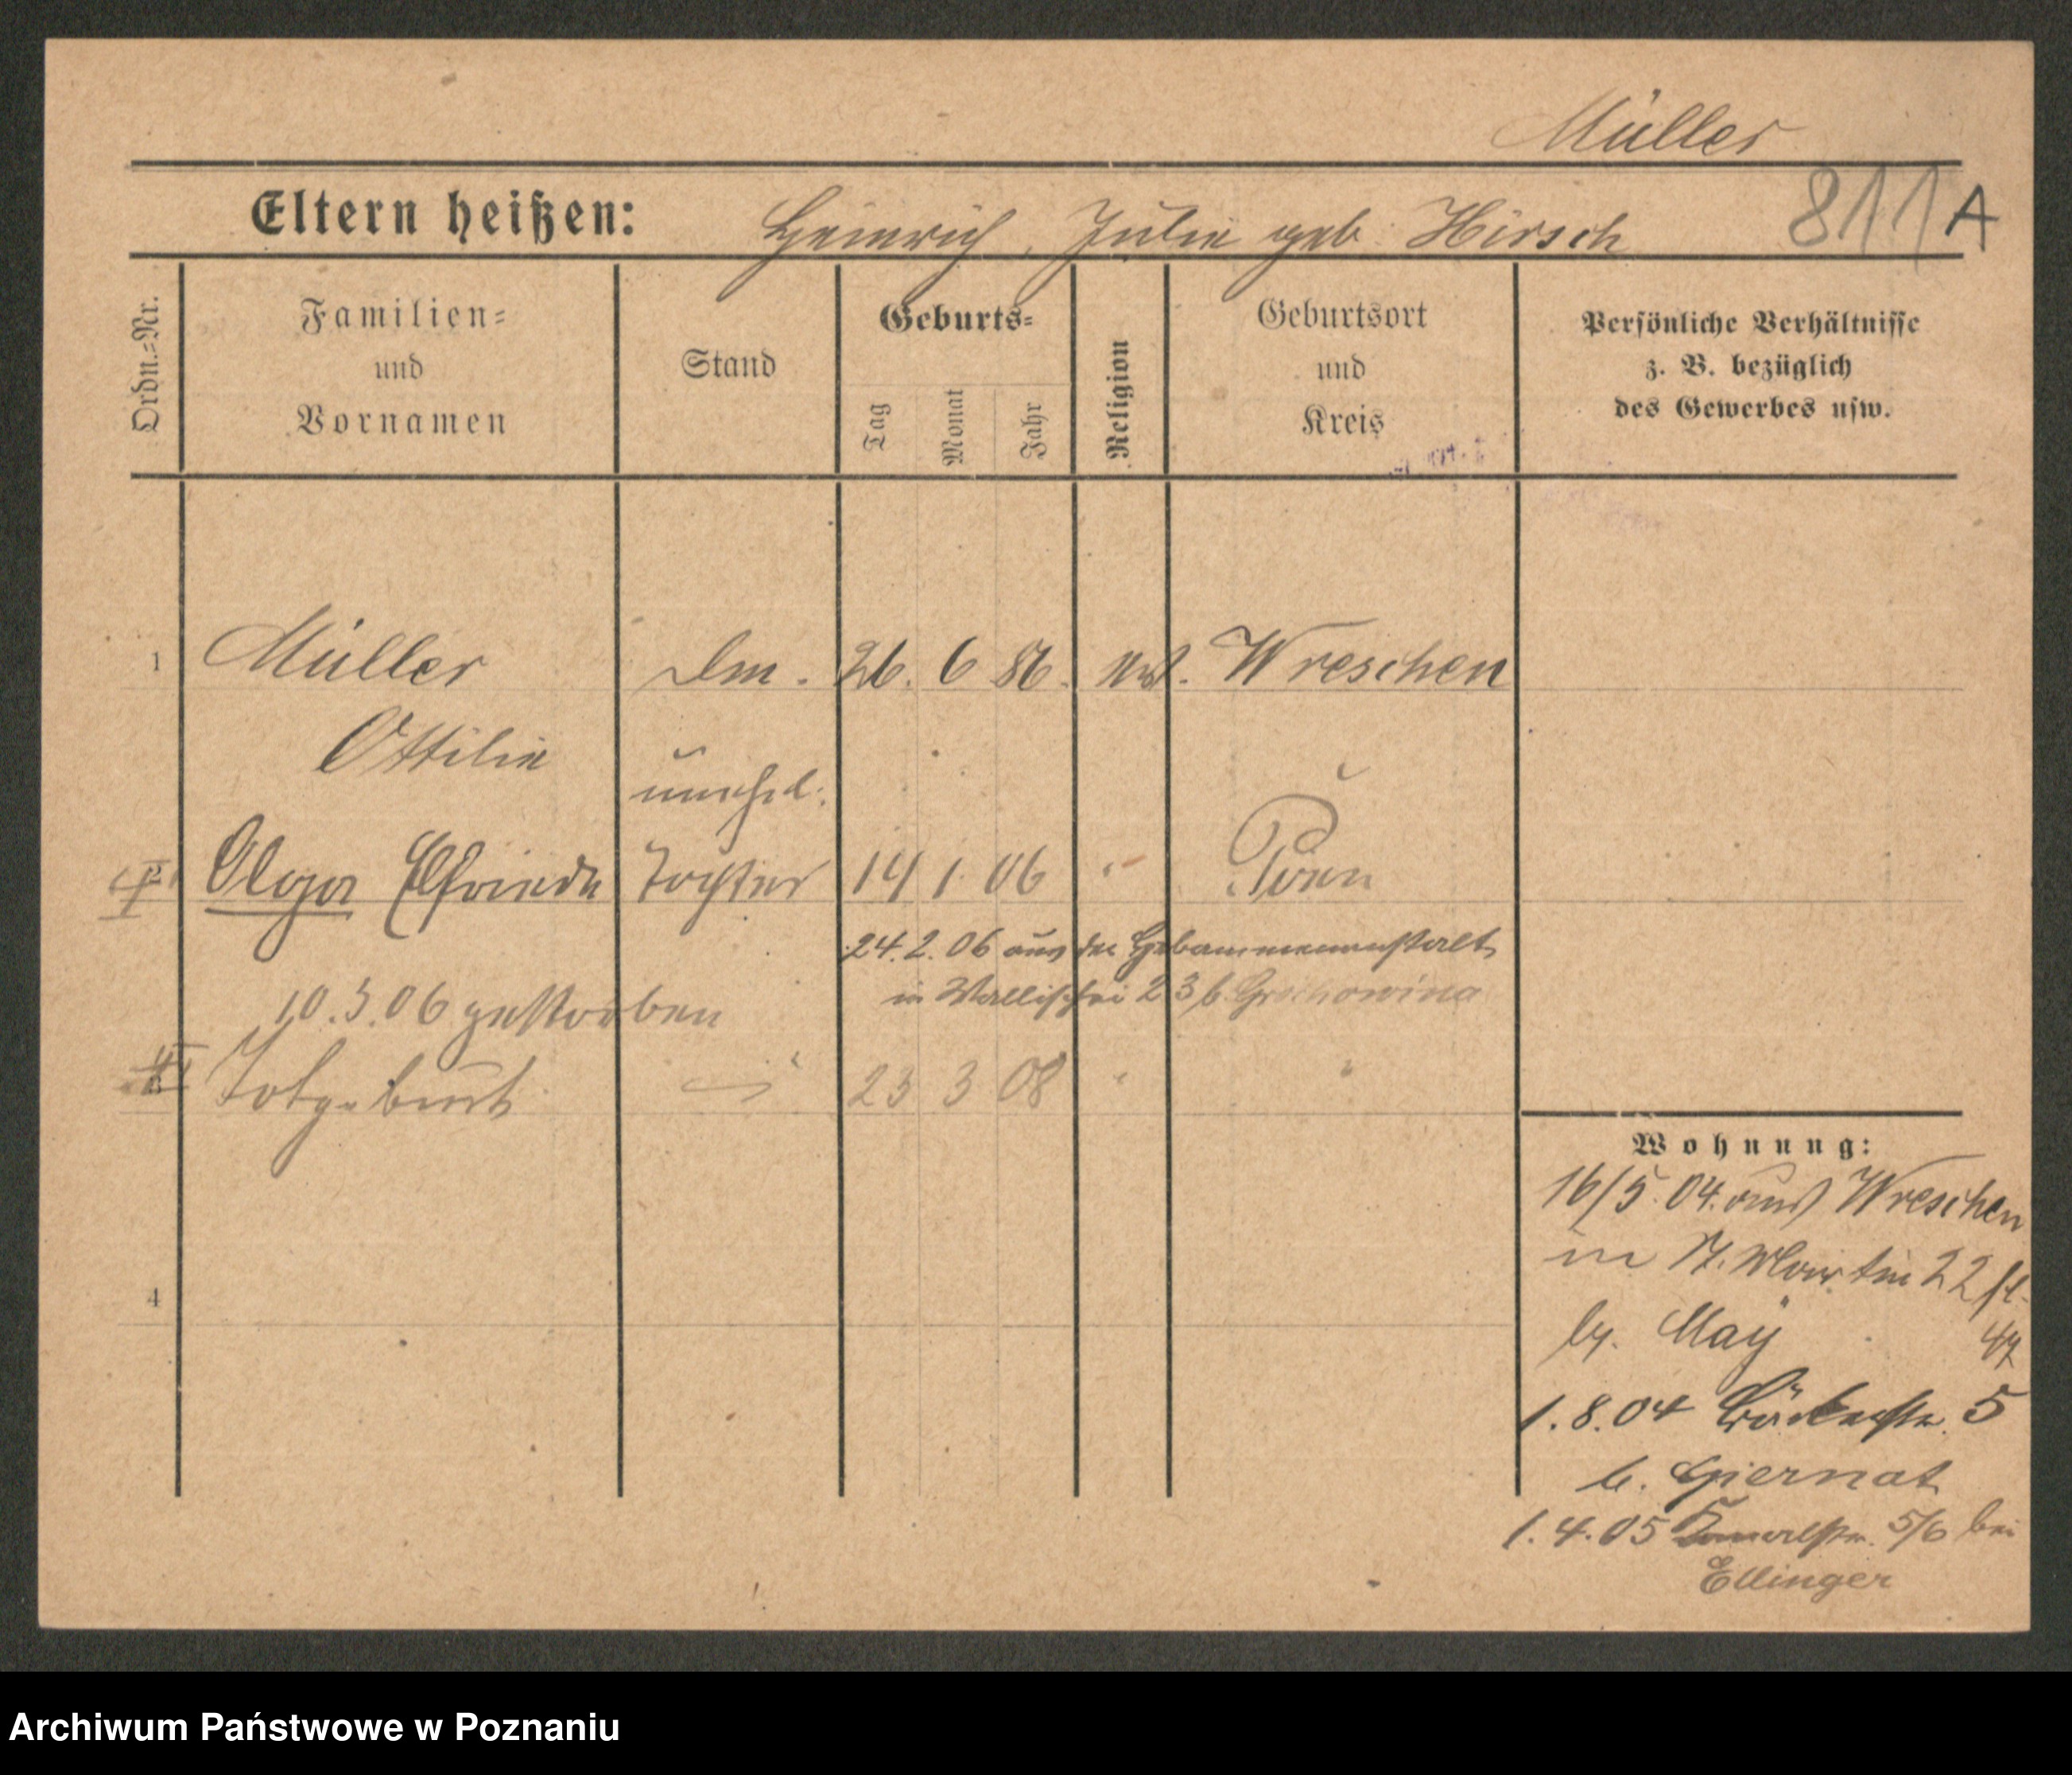 Müller
Eltern heißen: Heinrich, Julie geb. Hirsch 811 A
Ordn.=Nr.
Familien=
und
Vornamen
Stand
Geburts=
Tag
Monat
Jahr
Religion
Geburtsort
und
Kreis
Persönliche Verhältnisse
z. B. bezüglich
des Gewerbes usw.
1 Müller 26. 6 86. Wreschen
Ottilie
unehel.
Olga Elfriede Tochter 14 1. 06 " Posen
24.2.06 aus der Hebammenanstalt
in Wallischei 23 b. Grochowina
10.3.06 gestorben
Totgeburt 23 3 08 " "
4
Wohnung:
16/5. 04. aus Wreschen
in St. Martin 22
by. May
1.8.04 Bäckerstr. 5
b. Giernat
1.4.05 5/6 bei
Ellinger
Archiwum Państwowe w Poznaniu